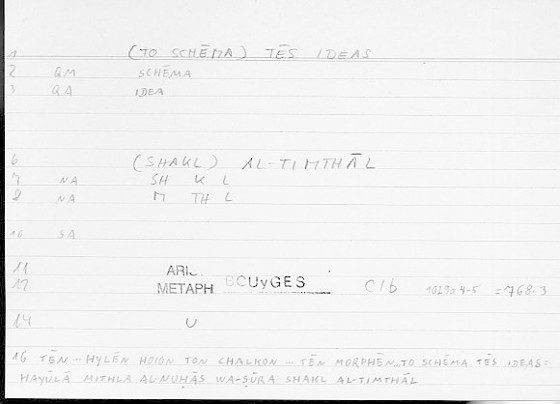 1 (TO SCHĒMA) TĒS IDEAS
2 QM SCHĒMA
3 QA IDEA
6 (SHAKL) AL-TIMTHĀL
7 NA SH K L
8 NA M TH L
10 SA
11 ARI
12 METAPH BOUyGES C1b 1029a4-5 =768.3
14 U
16 TĒN... HYLĒN HOION TON CHALKON - TĒN MORPHĒN...TO SCHĒMA TĒS IDEAS=
HAYŪLĀ MITHLA AL-NUḤĀS WA-ṢŪRA SHAKL AL-TIMTHĀL